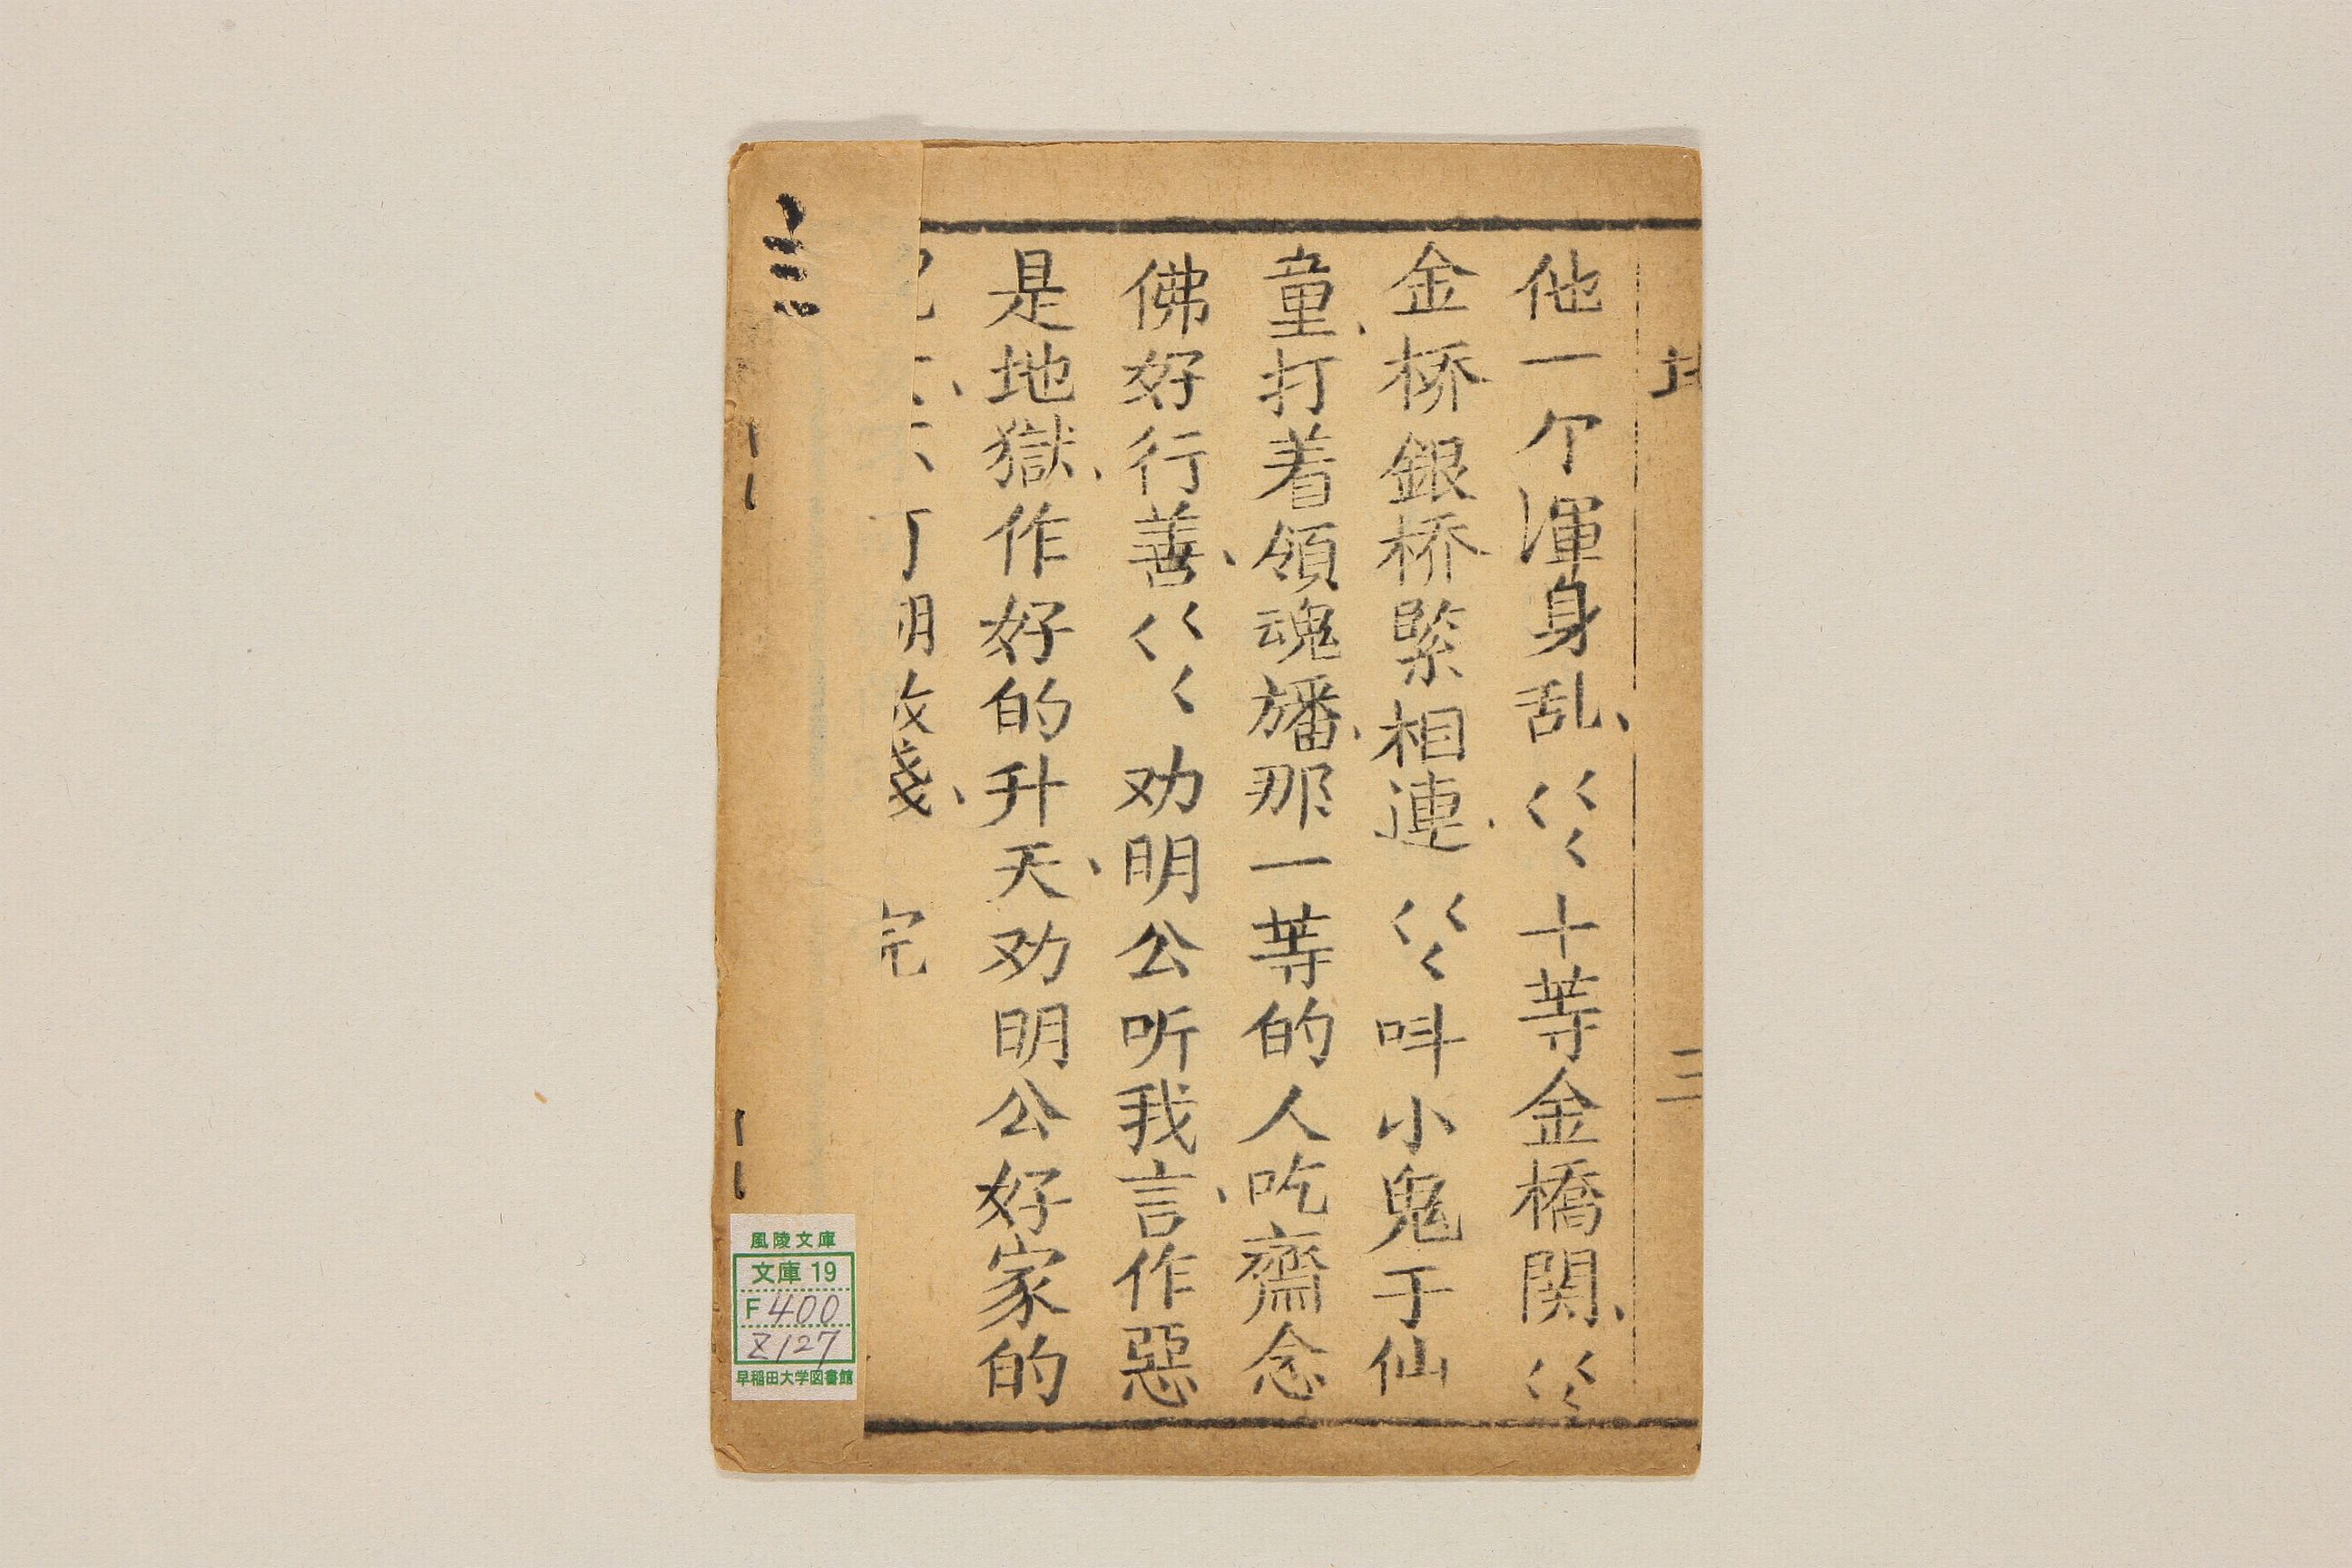 三
他一个渾身乱、〱〱〱十等金橋関、〱〱〱
金桥銀桥緊相連、〱〱〱呌小鬼于仙
童、打着領魂旛、那一等的人吃齋念
佛好行善、〱〱〱劝明公听我言、作惡
是地獄、作好的升天、劝明公好家的
完
風陵文庫
文庫 19
F 400
Z127
早稲田大学図書館